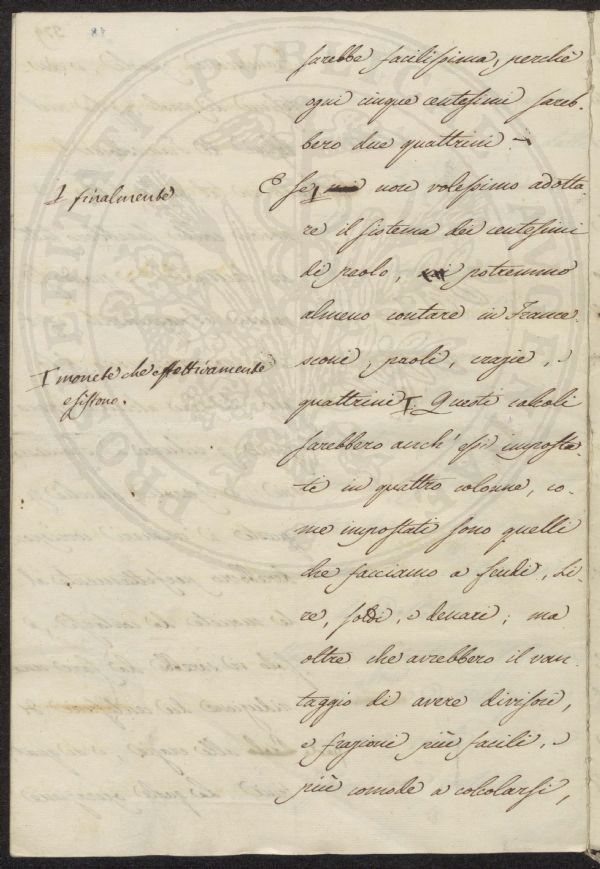 sarebbe facilissima, perchè
ogni cinque centesimi sareb-
bero due quattrini.
I finalmente
E se I non volessimo adotta
re il sistema dei centesimi
di paolo, potremmo
almeno contare in France
sconi, paoli, crazie, e
I monete che effettivamente
esistono.
quattrini I. Questi calcoli
sarebbero anch' essi imposta
ti in quattro colonne, co-
me impostati sono quelli
che facciamo a scudi, Li-
re, soldi, e denari; ma
oltre che avrebbero il van
taggio di avere divisori,
e frazioni più facili, e
più comode a calcolarsi,